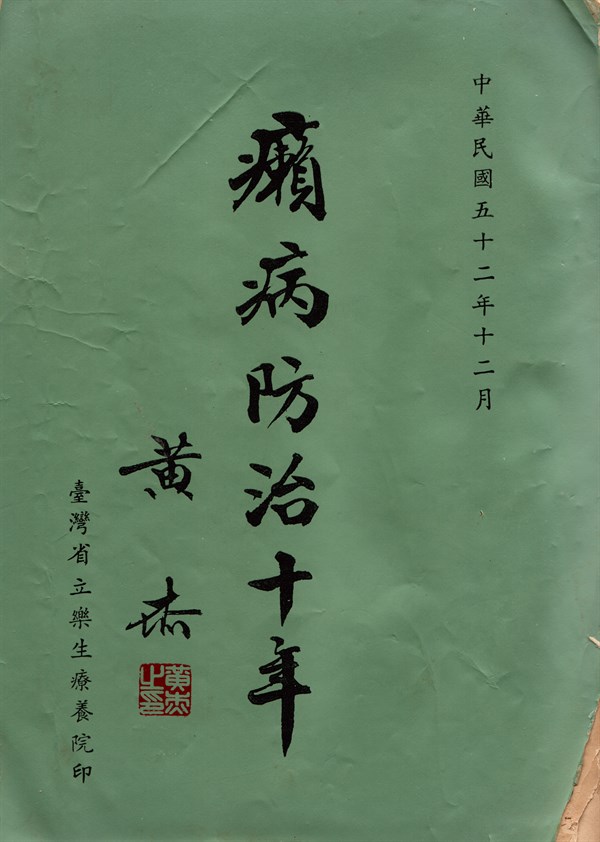 中華民國五十二年十二月
癩病防治十年
黃杰
黃杰之印
臺灣省立樂生療養院印